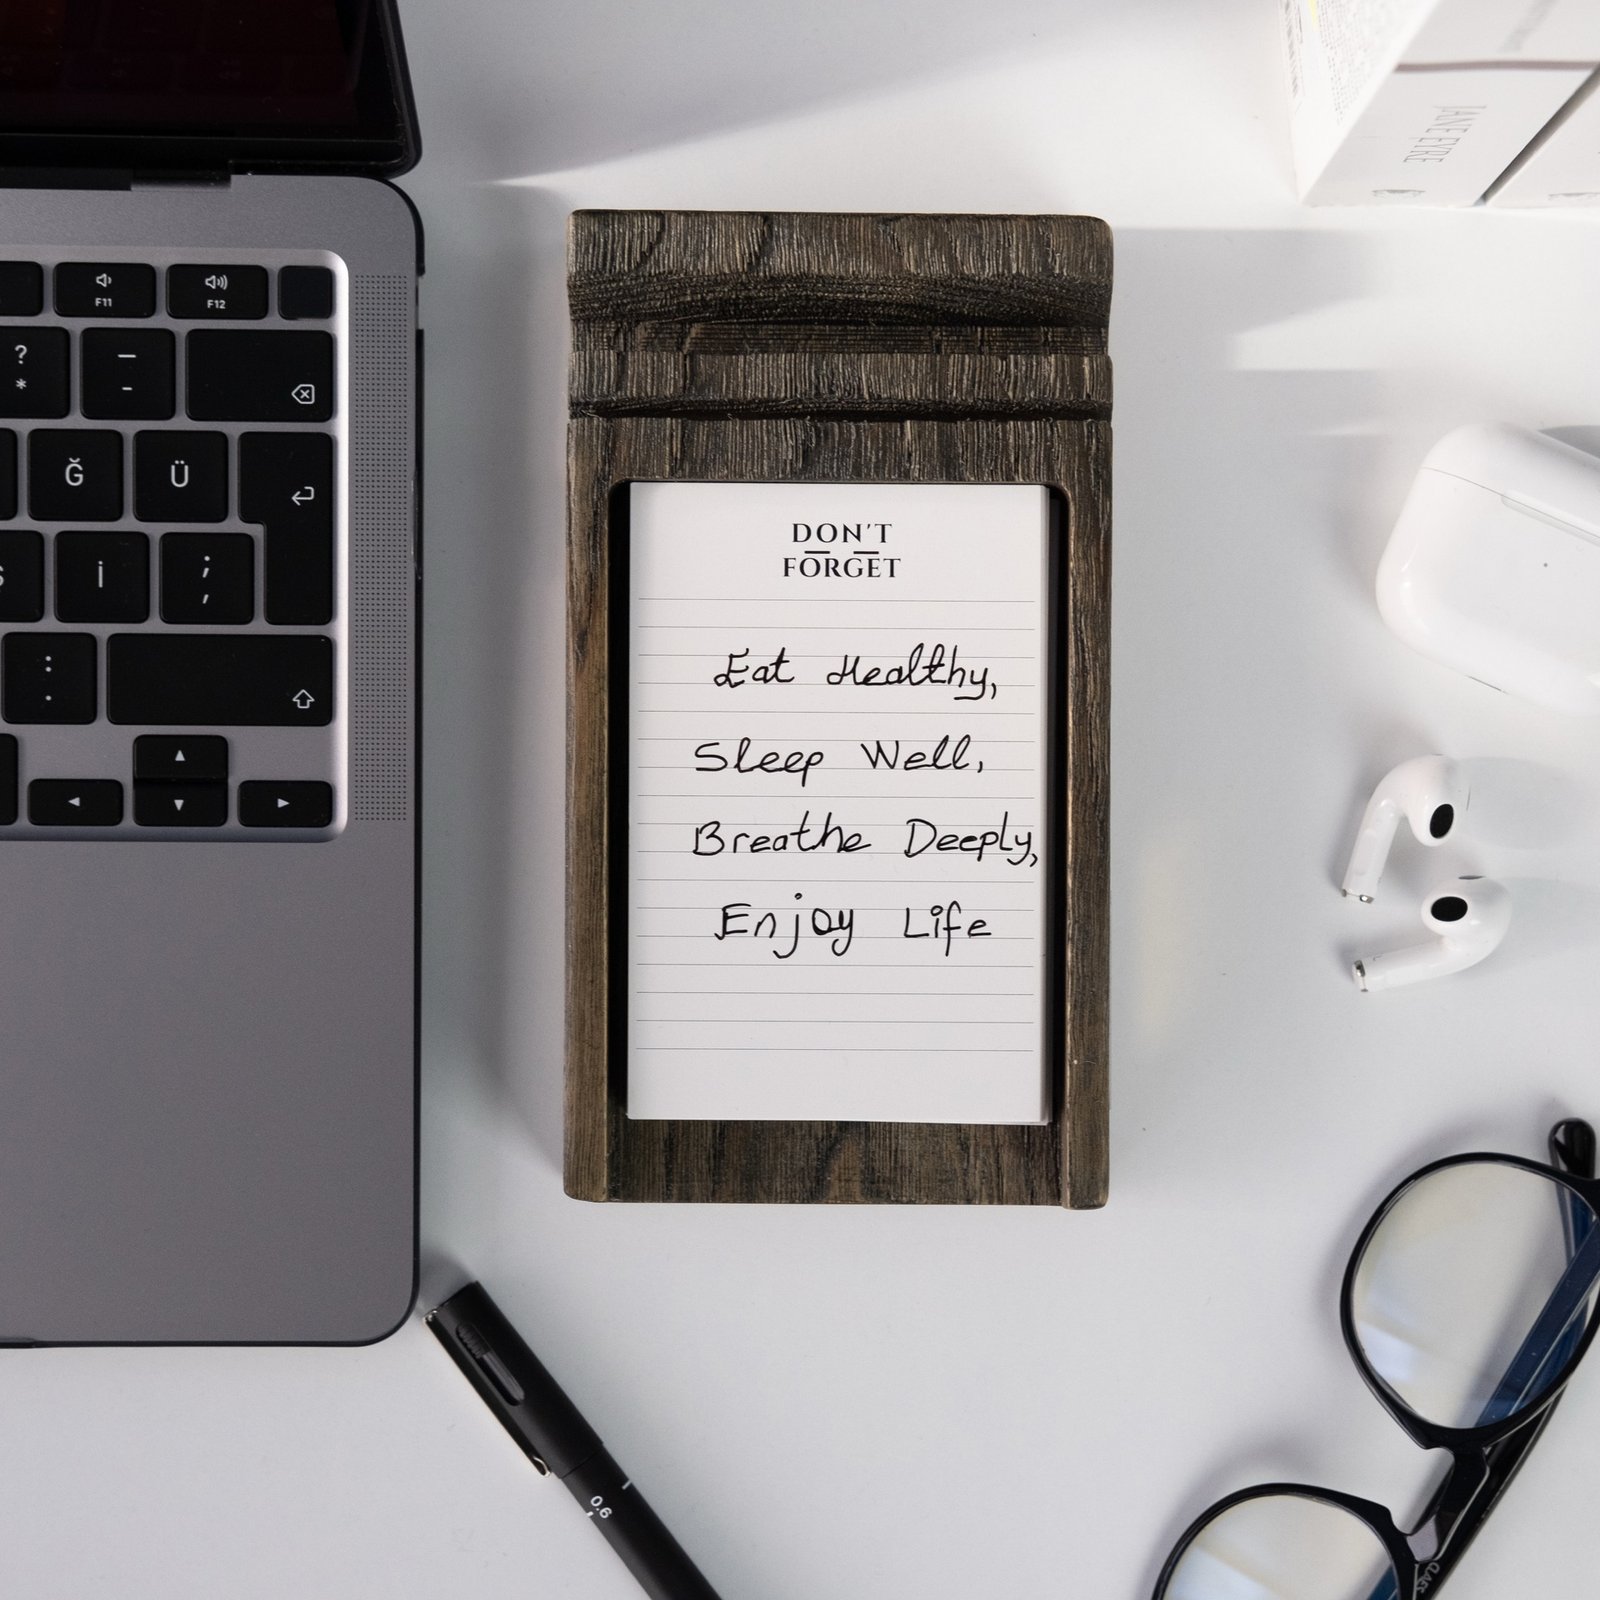 F11
F12
?
*
–
-
Ğ
Ü
İ
;
,
:
.
JANE EYRE
DON'T
FORGET
Eat Healthy,
Sleep Well,
Breathe Deeply,
Enjoy Life
0.6